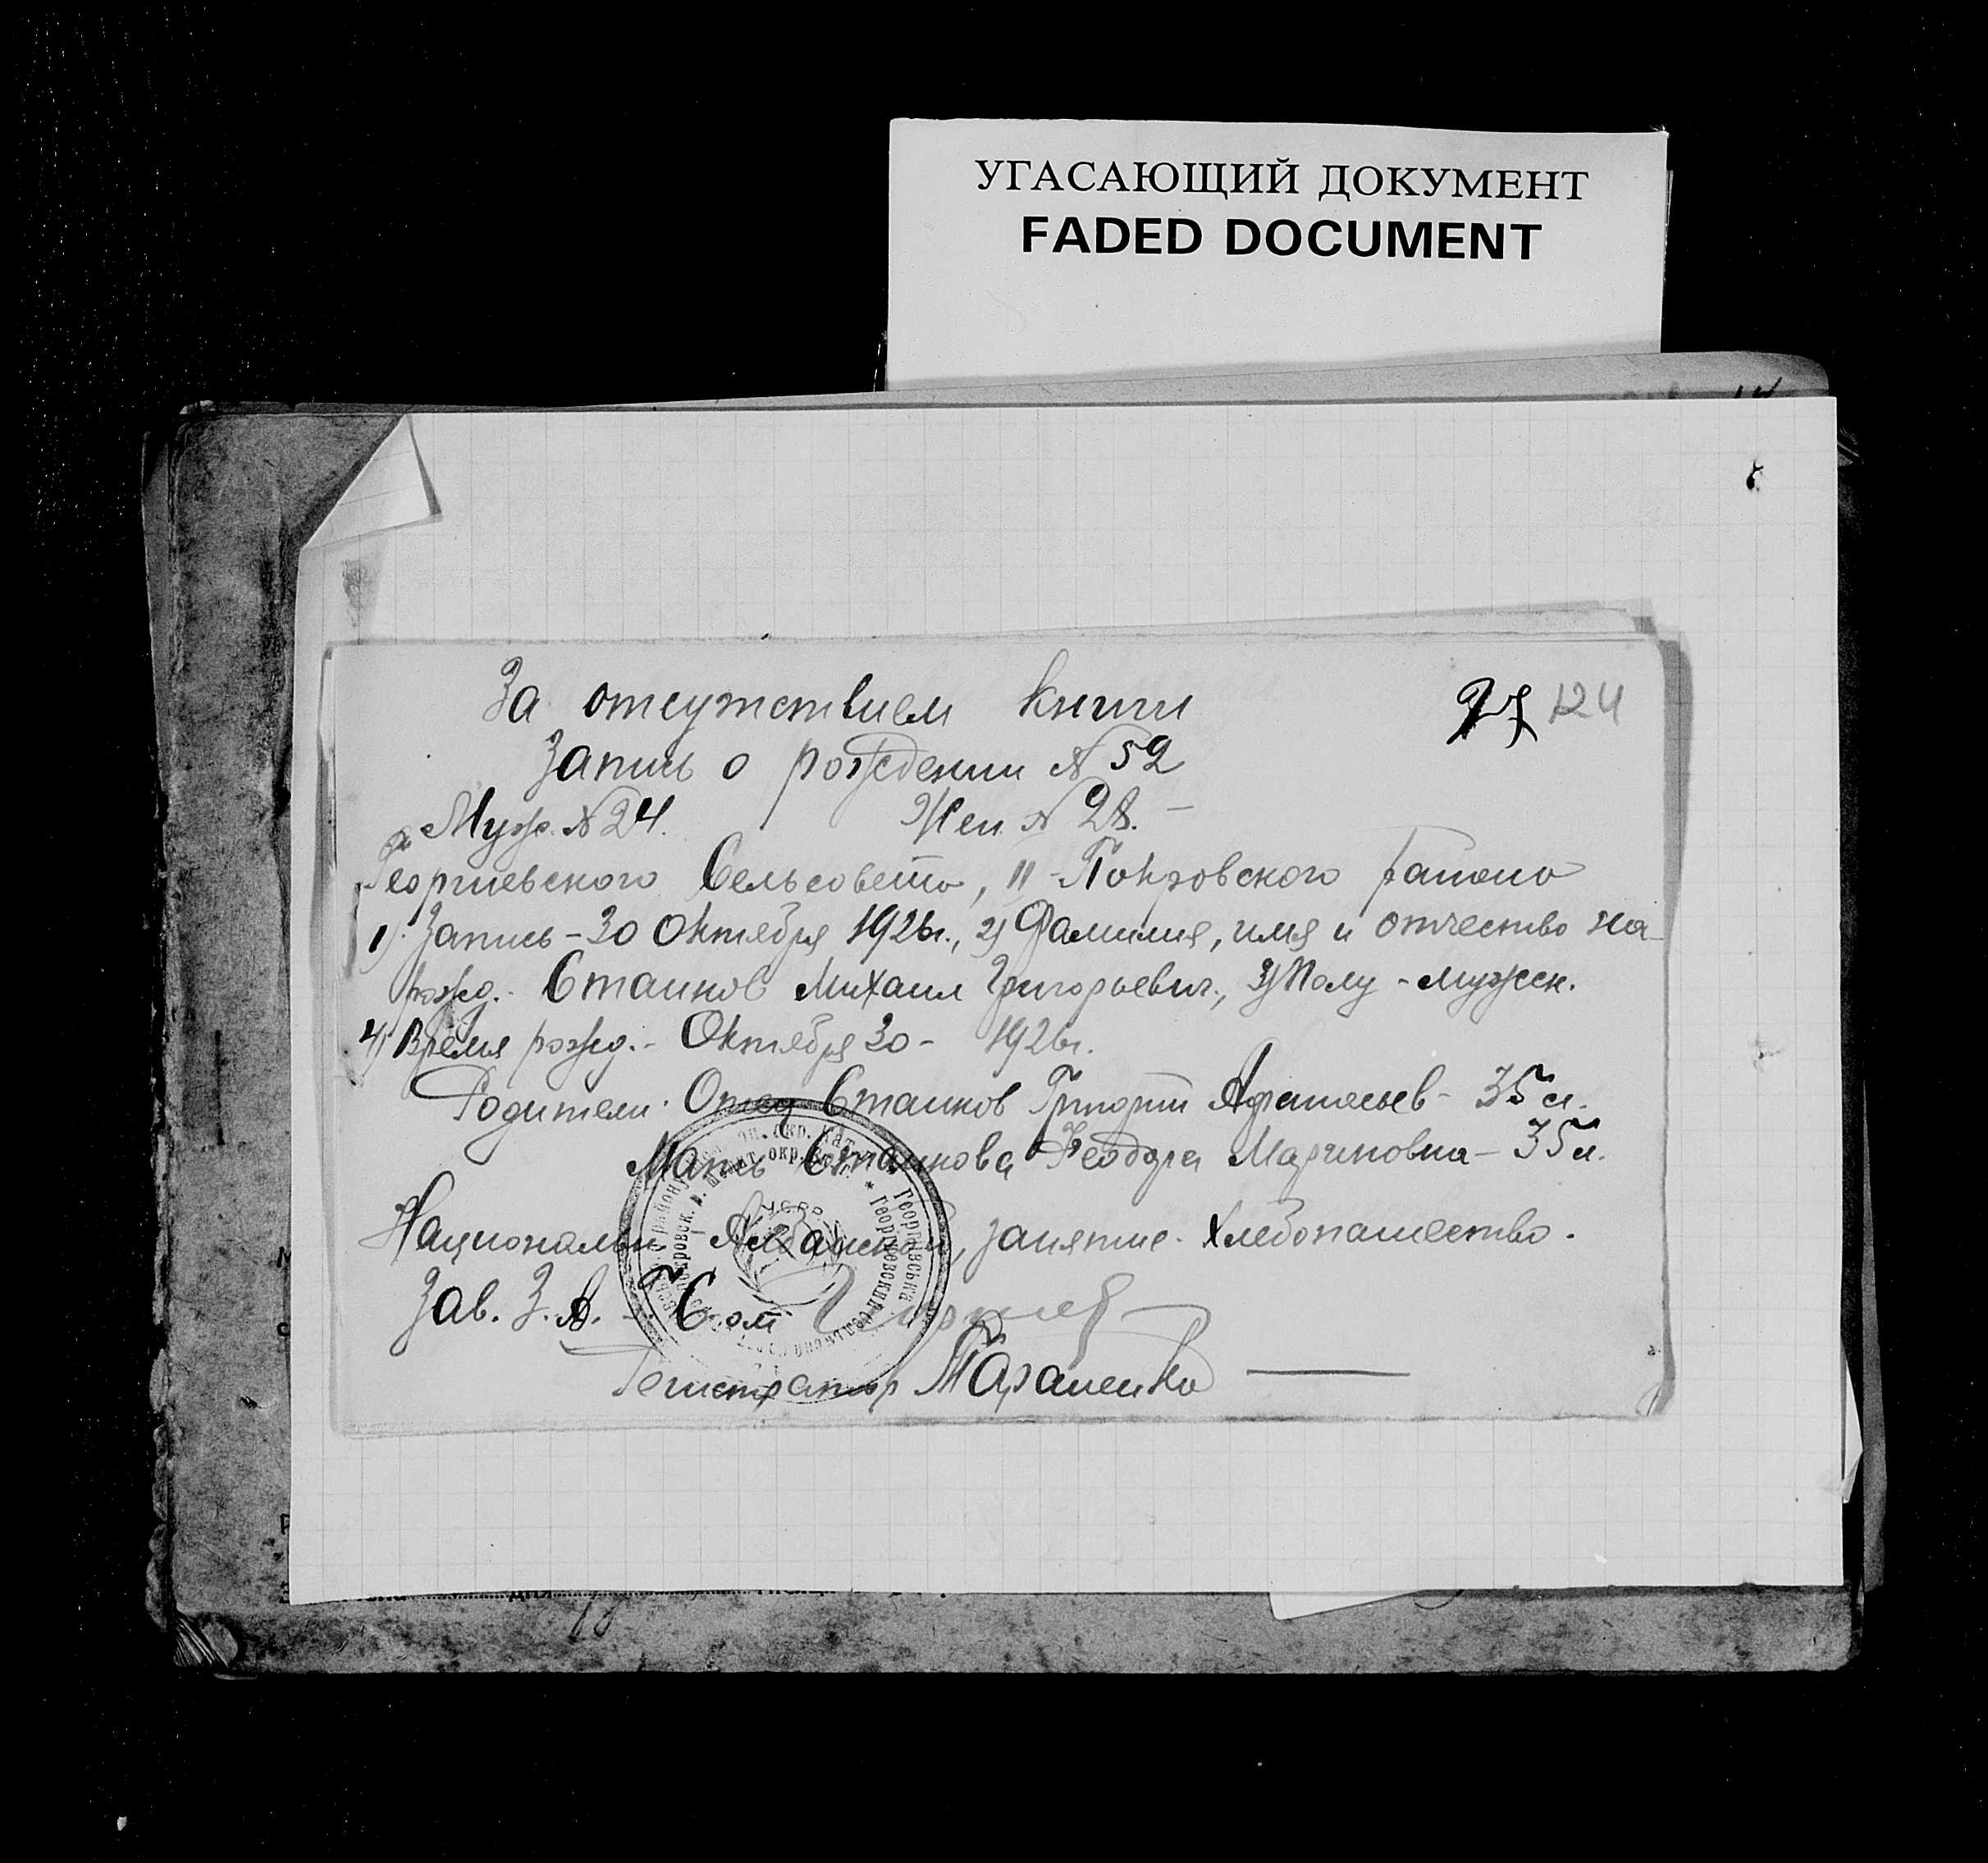 УГАСАЮЩИЙ ДОКУМЕНТ
FADED DOCUMENT
124
За отсутствием книги
Запись о рождении № 52
Муж. № 24. Жен № 28. –
Георгиевского Сельсовета, II - Покровского района
1). Запись – 30 Октября 1926г., 2) Фамилия, имя и отчество на-
рожд. - Стаинов Михаил Григорьевич., 3) Полу - мужск.
4) Время рожд. - Октября 30 - 1926г.
Родители. Отец Стаинов Григорий Афанасьев - 35 л.
Мать Стаинова Феодора Мариновна - 35 л.
Национальн Албанской, занятие - Хлебопашество.
Зав. З. А.
Регистратор Тараненко